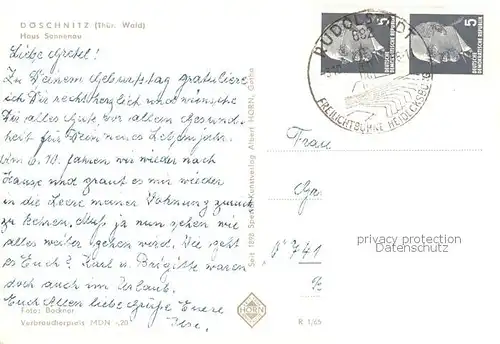 DÖSCHNITZ (Thür. Wald)
Haus Sonnenau
Liebe Gretel!
Zu Deinem Geburtstag gratuliere
ich Dir recht herzlich und wünsche
Dir alles Gute vor allem Gesund-
heit für Dein neues Lebensjahr.
Am 6.10. fahren wir wieder nach
Hause und graut es mir wieder
in die Leere meiner Wohnung zurück
zu kehren. Muß ja nun sehen wie
alles weiter gehen wird. Wie geht
es Euch? Karl u. Brigitte waren
doch auch im Urlaub.
Euch Allen liebe Grüße Eure
Ilse.
Foto: Backnor
Verbraucherpreis MDN -,20
Seit 1895 Spezial-Kunstverlag Albert HORN, Gotha
HORN
R 1/65
RUDOLSTADT
FREILICHTBÜHNE HEIDECKSBURG
5
DEUTSCHE
DEMOKRATISCHE REPUBLIK
5
DEUTSCHE
DEMOKRATISCHE REPUBLIK
Frau
741
privacy protection